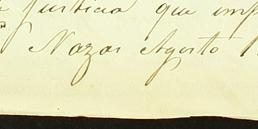 justicia que imp
Nazar Agosto